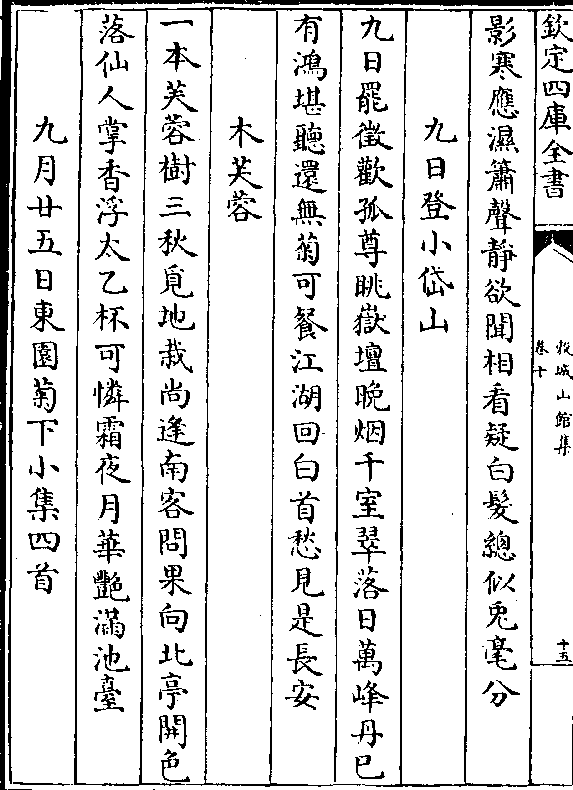 欽定四庫全書
穀城山館集
卷十
十五
影寒應濕簫聲靜欲聞相看疑白髮總似兎毫分
九日登小岱山
九日罷徵歡孤尊眺嶽壇晚烟千室翠落日萬峰丹已
有鴻堪聽還無菊可餐江湖回白首愁見是長安
木芙蓉
一本芙蓉樹三秋覓地栽尚逢南客問果向北亭開色
落仙人掌香浮太乙杯可憐霜夜月華艷滿池臺
九月廿五日東園菊下小集四首